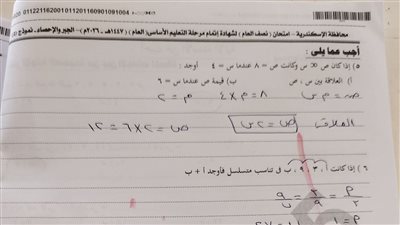 01122162001011201160901091004
محافظة الإسكندرية - امتحان (نصف العام) لشهادة إتمام مرحلة التعليم الأساسي العام (١٤٤٧هـ - ٢٠٢٦م) - الجبر والإحصاء - نموذج
أجب عما يلي :
٥) إذا كان ص ∝ س وكانت ص = ٨ عندما س = ٤ أوجد :
أ) العلاقة بين س ، ص ب) قيمة ص عندما س = ٦
ص = م س ٨ = م × ٤ م = ٢
العلاقة ص = ٢ س ص = ٢ × ٦ = ١٢
٦) إذا كانت أ ، ٣ ، ٩ ، ب في تناسب متسلسل فأوجد أ + ب